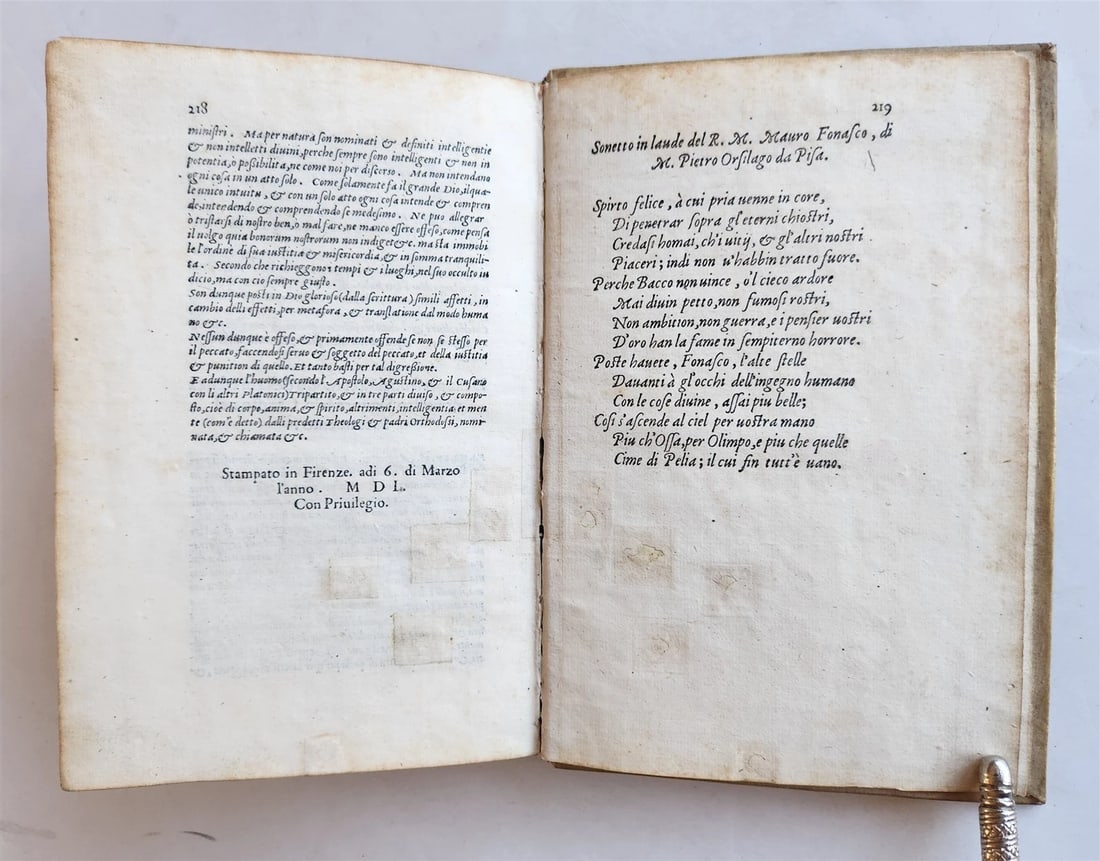 218
ministri. Ma per natura son nominati & definiti intelligentie
& non intelletti divini, perche sempre sono intelligenti & non in
potentia, ò possibilita, ne come noi per discorso. Ma non intendano
ogni cosa in un atto solo. Come solamente fa il grande Dio, ilqua-
le unico intuitu, & con un solo atto ogni cosa intende & compren
de, intendendo & comprendendo se medesimo. Ne puo allegrar
ò tristarsi di nostro ben, ò mal fare, ne manco essere offeso, come pensa
il volgo quia bonorum nostrorum non indiget &c. ma sta immobi
le l'ordine di sua iustitia & misericordia, & in somma tranquili-
ta. Secondo che richieggono i tempi & i luoghi, nel suo occulto iu
dicio, ma con cio sempre giusto.
Son dunque posti in Dio glorioso (dalla scrittura) simili affetti, in
cambio delli effetti, per metafora, & translatione dal modo huma
no &c.
Nessun dunque è offeso, & primamente offende se non se stesso, per
il peccato, faccendosi servo & soggetto del peccato, et della iustitia
& punition di quello. Et tanto basti per tal digressione.
E adunque l'huomo (secondo l'Apostolo, Agustino, & il Cusano
con li altri Platonici) Tripartito, & in tre parti diviso, & compo-
sto, cioè di corpo, anima, & spirito, altrimenti, intelligentia et men
te (com'è detto) dalli predetti Theologi & padri Orthodosii, nomi-
nata, & chiamata &c.
Stampato in Firenze. adi 6. di Marzo
l'anno. M D L.
Con Priuilegio.
219
Sonetto in laude del R. M. Mauro Fonasco, di
M. Pietro Orsilago da Pisa.
Spirto felice, à cui pria uenne in core,
Di penetrar sopra gl'eterni chiostri,
Credasi homai, ch'i uitij, & gl'altri nostri
Piaceri; indi non u'habbin tratto fuore.
Perche Bacco non uince, o'l cieco ardore
Mai diuin petto, non fumosi rostri,
Non ambition, non guerra, e i pensier uostri
D'oro han la fame in sempiterno horrore.
Poste hauete, Fonasco, l'alte stelle
Dauanti à gl'occhi dell'ingegno humano
Con le cose diuine, assai piu belle;
Cosi s'ascende al ciel per uostra mano
Piu ch'Ossa, per Olimpo, e piu che quelle
Cime di Pelia; il cui fin tutt'è uano.